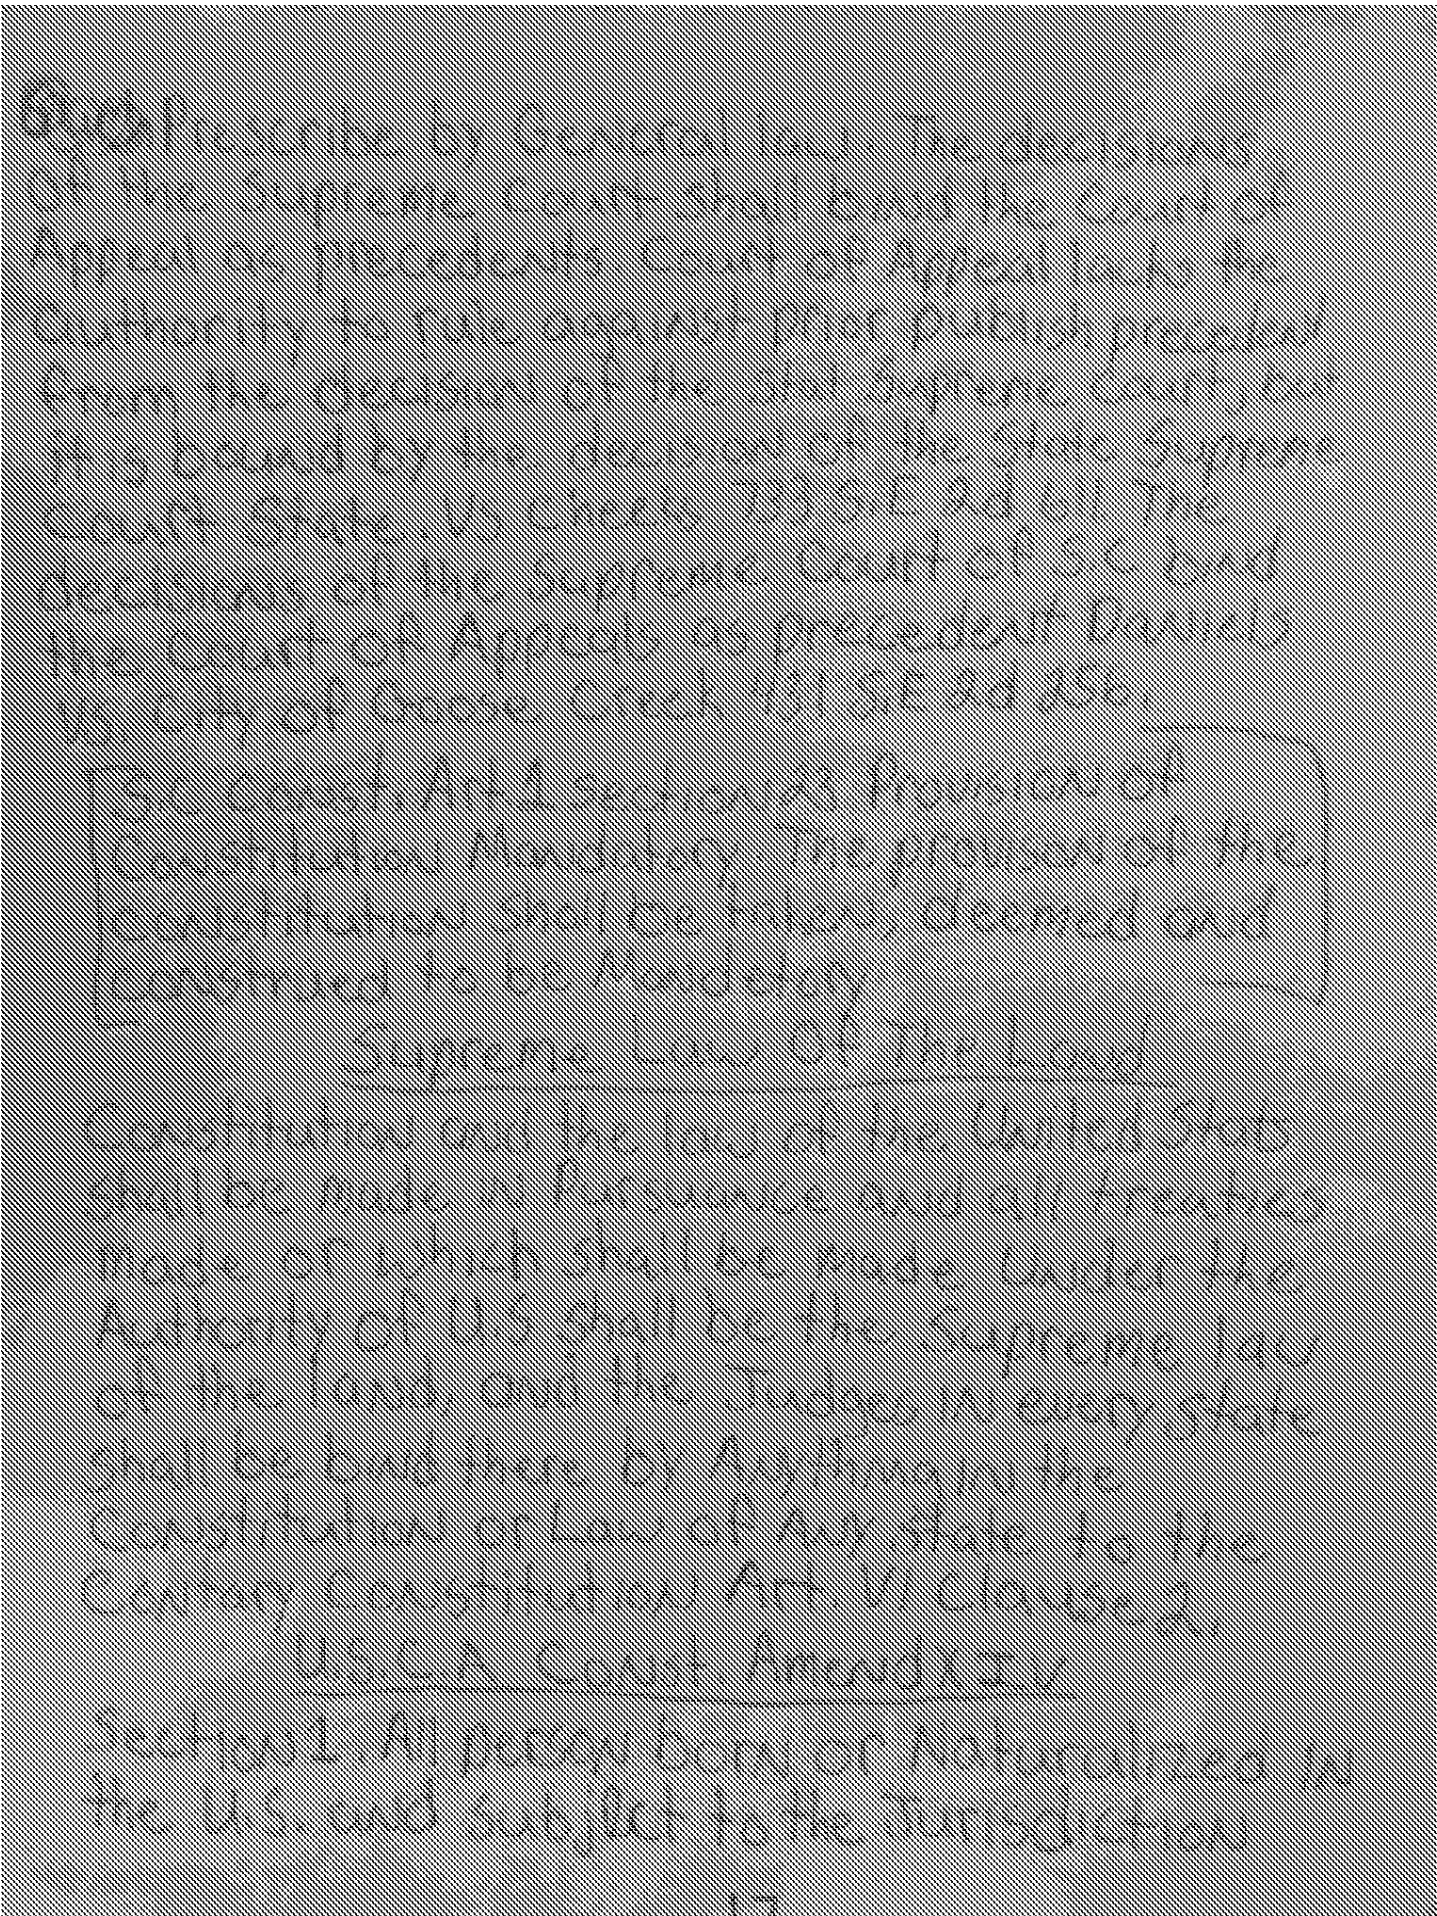 Prescribe by General Law. The decisions
Of the Supreme Court shall bind the Court of
Appeal as precedents Court of Appeal lacks the
Authority to rule against prior publish precedent
From the decision of the State Supreme Court, nor
it is bound by the decision of the State Supreme
Court State Vs Cheeks 733 S.E. 2d 611 The
decisions of the Supreme Court of S.C. bind
the Court of Appeals as precedent
Vs. City of Goose Creek 701 SE 2d 256.
S.C. Const. Art 1 Section 23 Provision of
Constitution Mandatory The provision of the
Constitution shall be taken, deemed and
Construed to be Mandatory
Supreme Law Of The Land
Constitution and the Law of the United States
Shall be made in Pursuance and all treaties
made or which shall be made, Under the
Authority of US shall be the Supreme law
of the land; and the Judges in every state
Shall be bound there by Anything in the
Constitution or Law of Any state to the
Contrary Constitution Art. VI clause 2
U.S.C.A. Const. Amendix
Section 1. All person born or Naturalized in
the U.S. and subject to the Jurisdiction
17